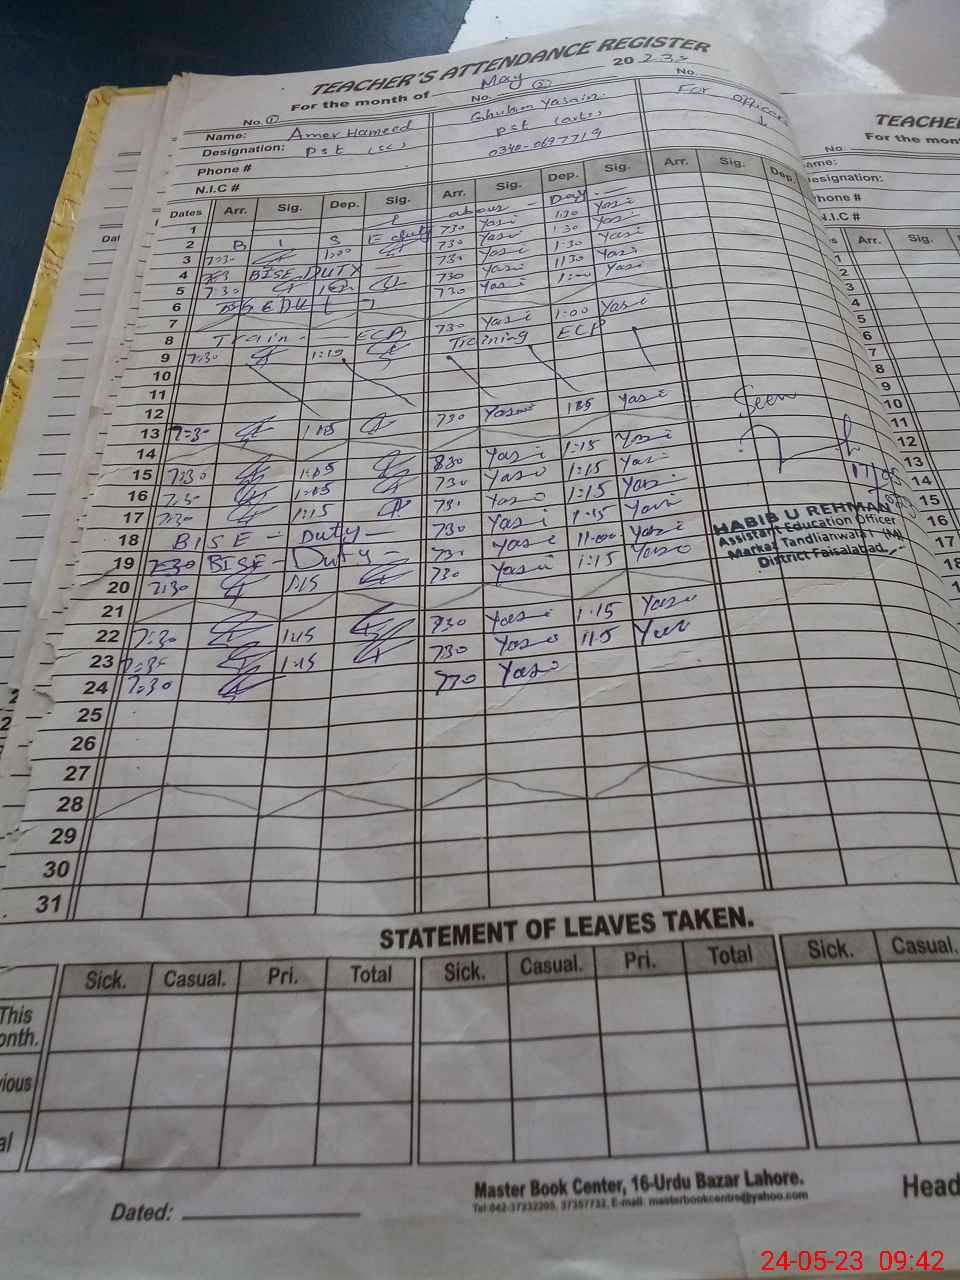 TEACHER'S ATTENDANCE REGISTER
For the month of May 2023
No. ① No. ② No.
Name: Amer Hameed Ghulam Yasain For officers
Designation: PST (sc) PST (arts)
Phone # 0340-0697719
N.I.C #
Dates Arr. Sig. Dep. Sig. Arr. Sig. Dep. Sig. Arr. Sig. Dep.
1 labour - Day
2 B I S E duty 730 Yasi 1:30 Yasi
3 7:30 1:00 730 Yasi 1:30 Yasi
4 BISE DUTY 730 Yasi 1:30 Yasi
5 7:30 730 Yasi 1130 Yasi
6 730 Yasi 1:00 Yasi
7
8 Train - ECP 730 Yasi 1:00 Yasi
9 7:30 1:10 Training ECP
10
11
12
13 7:30 1:15 730 Yasi 1:15 Yasi
14
15 7:30 1:15 830 Yasi 1:15 Yasi
16 7:30 1:15 730 Yasi 1:15 Yasi
17 7:30 1:15 730 Yasi 1:15 Yasi
18 BISE - Duty - 730 Yasi 1:15 Yasi
19 7:30 BISE - Duty - 730 Yasi 11:00 Yasi
20 7:30 1:15 730 Yasi 1:15 Yasi
21
22 7:30 1:15 730 Yasi 1:15 Yasi
23 7:30 1:15 730 Yasi 115 Yasi
24 7:30 770 Yasi
25
26
27
28
29
30
31
Seen
17/05
2023
HABIB U REHMAN
Assistant Education Officer
Markaz Tandlianwala-I (M)
District Faisalabad
STATEMENT OF LEAVES TAKEN.
Sick. Casual. Pri. Total Sick. Casual. Pri. Total Sick. Casual.
This
onth.
vious
al
Master Book Center, 16-Urdu Bazar Lahore.
Tel:042-37232205, 37357732, E-mail: masterbookcentre@yahoo.com
Dated:
Head
TEACHE
For the mon
No.
ame:
esignation:
Phone #
N.I.C #
s Arr. Sig.
1
2
3
4
5
6
7
8
9
10
11
12
13
14
15
16
17
18
24-05-23 09:42